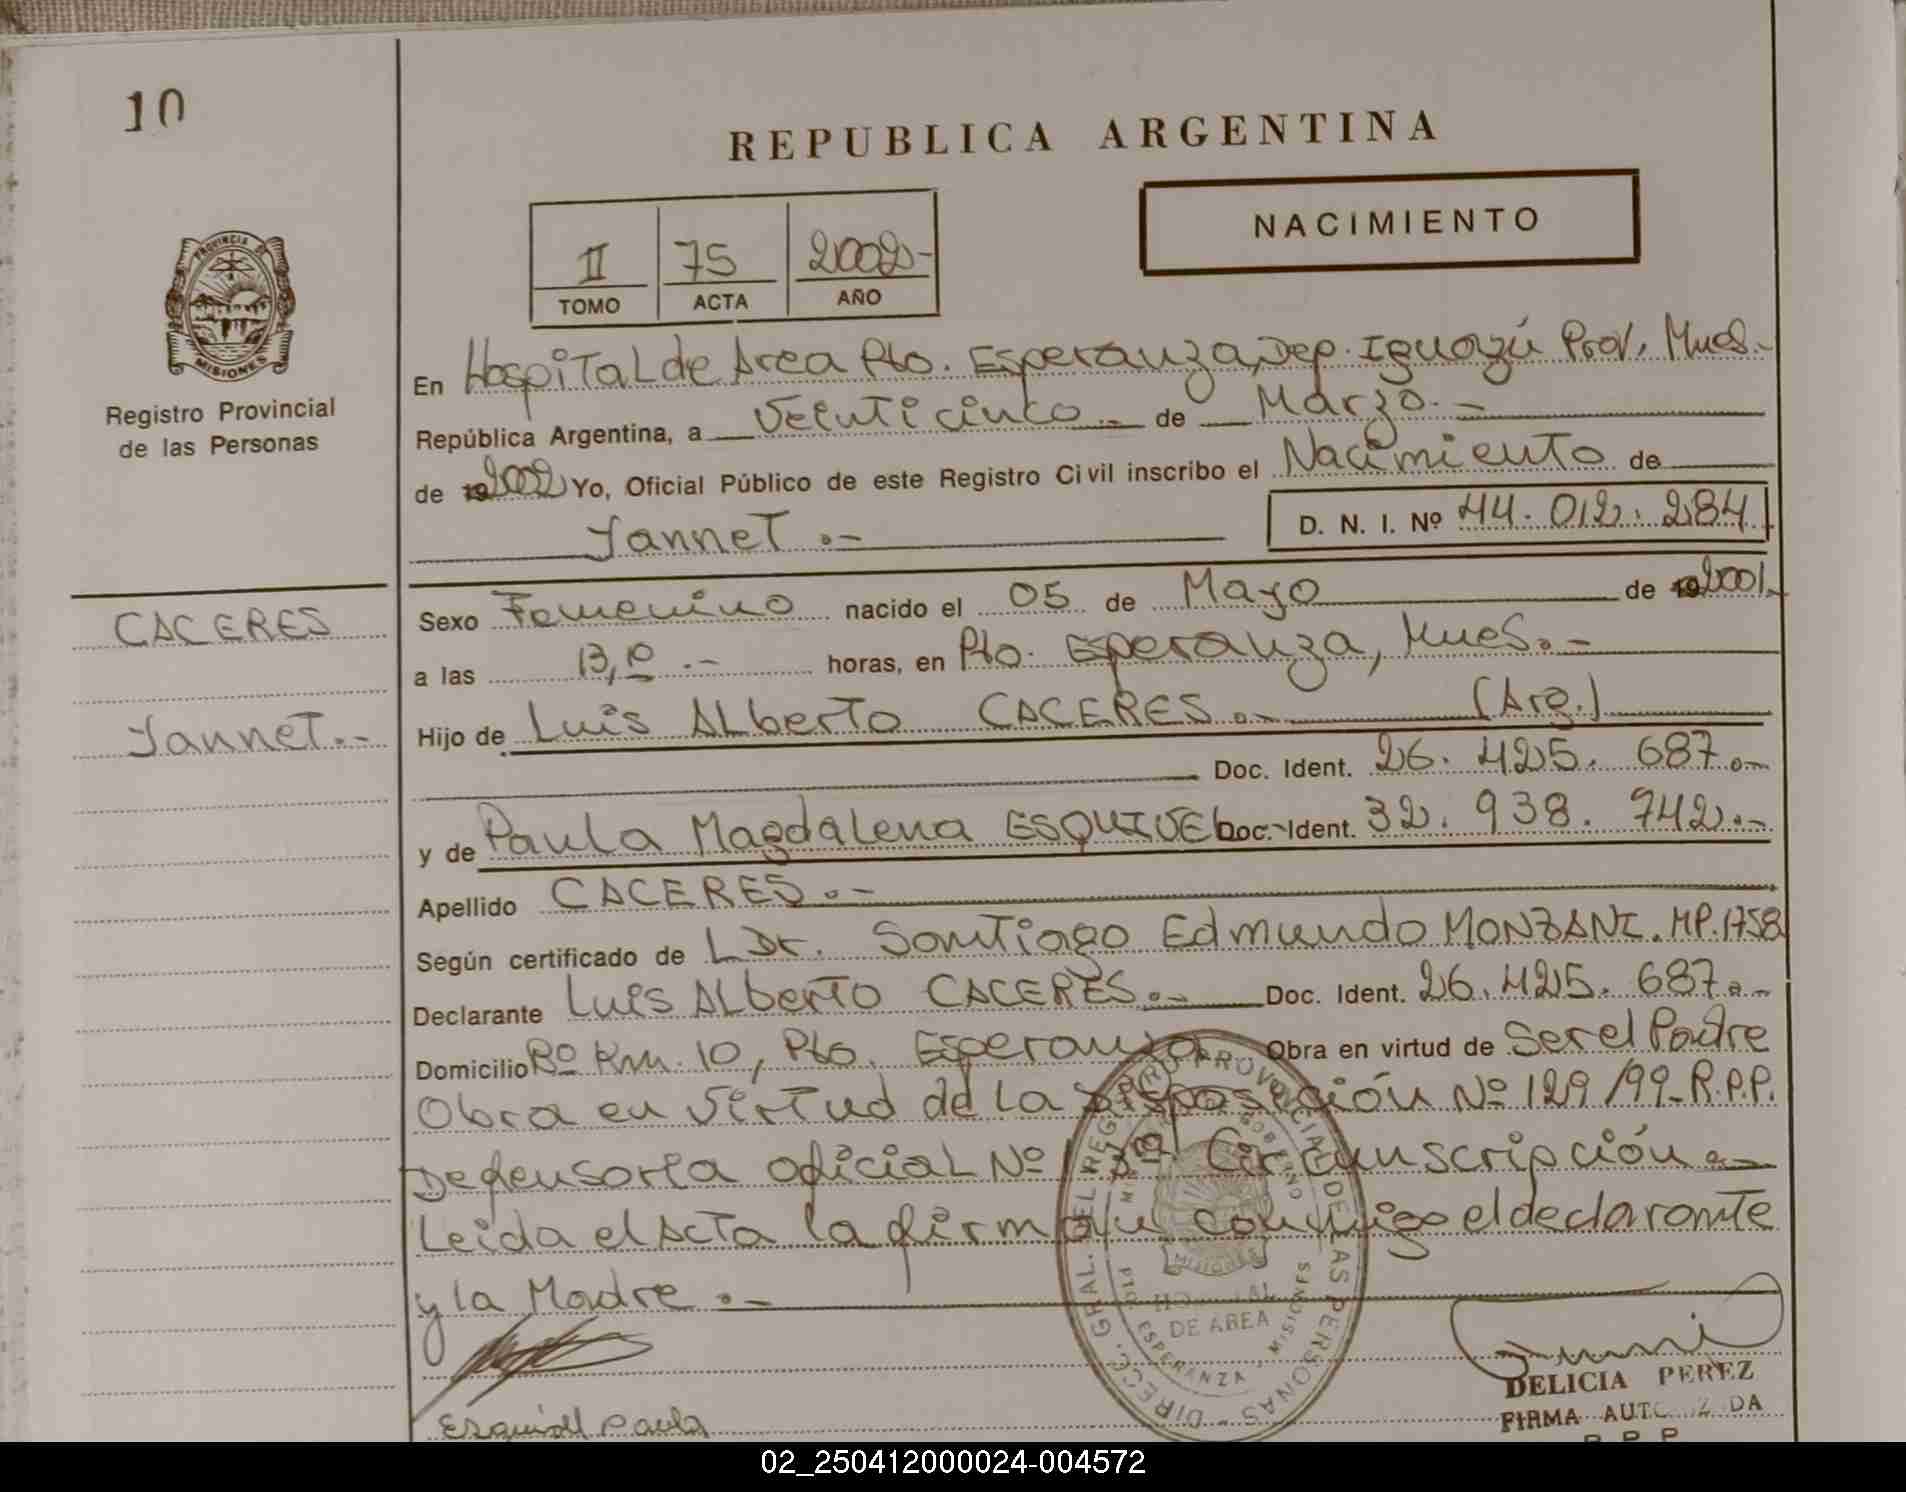 10
REPUBLICA ARGENTINA
NACIMIENTO
II 75 2002-
TOMO ACTA AÑO
PROVINCIA D
MISIONES
Registro Provincial
de las Personas
En Hospital de Area Pto. Esperanza, Dep. Iguazú Prov. Mnes.-
República Argentina, a Veinticinco.- de Marzo.-
de 19 2002 Yo, Oficial Público de este Registro Civil inscribo el Nacimiento de
Yannet.- D. N. I. Nº 44.012.284
CACERES
Yannet.-
Sexo Femenino nacido el 05 de Mayo de 19 2001.-
a las 13,10.- horas, en Pto. Esperanza, Mnes.-
Hijo de Luis Alberto CACERES.- (Arg.)
Doc. Ident. 26.425.687.-
y de Paula Magdalena ESQUIVEL Doc. Ident. 32.938.742.-
Apellido CACERES.-
Según certificado de L Dr. Santiago Edmundo MONZANI. MP.1758
Declarante Luis Alberto CACERES.- Doc. Ident. 26.425.687.-
Domicilio Rº Km. 10, Pto. Esperanza Obra en virtud de Ser el Padre
Obra en virtud de la Disposición Nº 129/99-R.P.P.
Defensoria oficial Nº 1 3ª Circunscripción.-
Leida el Acta la firman conmigo el declarante
y la Madre.-
DIRECC. GRAL. DEL REGISTRO PROVINCIAL DE LAS PERSONAS
GOBIERNO
MISIONES
HOSPITAL
DE AREA
PTO ESPERANZA, MISIONES
Esquivel Paula
DELICIA PEREZ
FIRMA AUTORIZADA
R P P
02_250412000024-004572